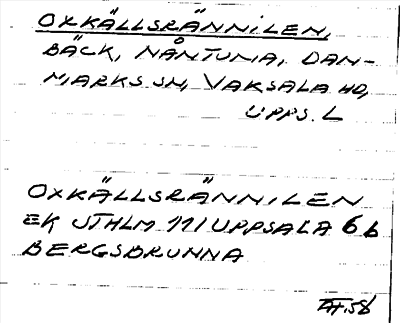 OXKÄLLSRÄNNILEN,
BÄCK, NÅNTUNA, DAN-
MARKS SN, VAKSALA HD,
UPPS. L
OXKÄLLSRÄNNILEN
EK UTHLM 111 UPPSALA 6b
BERGSBRUNNA